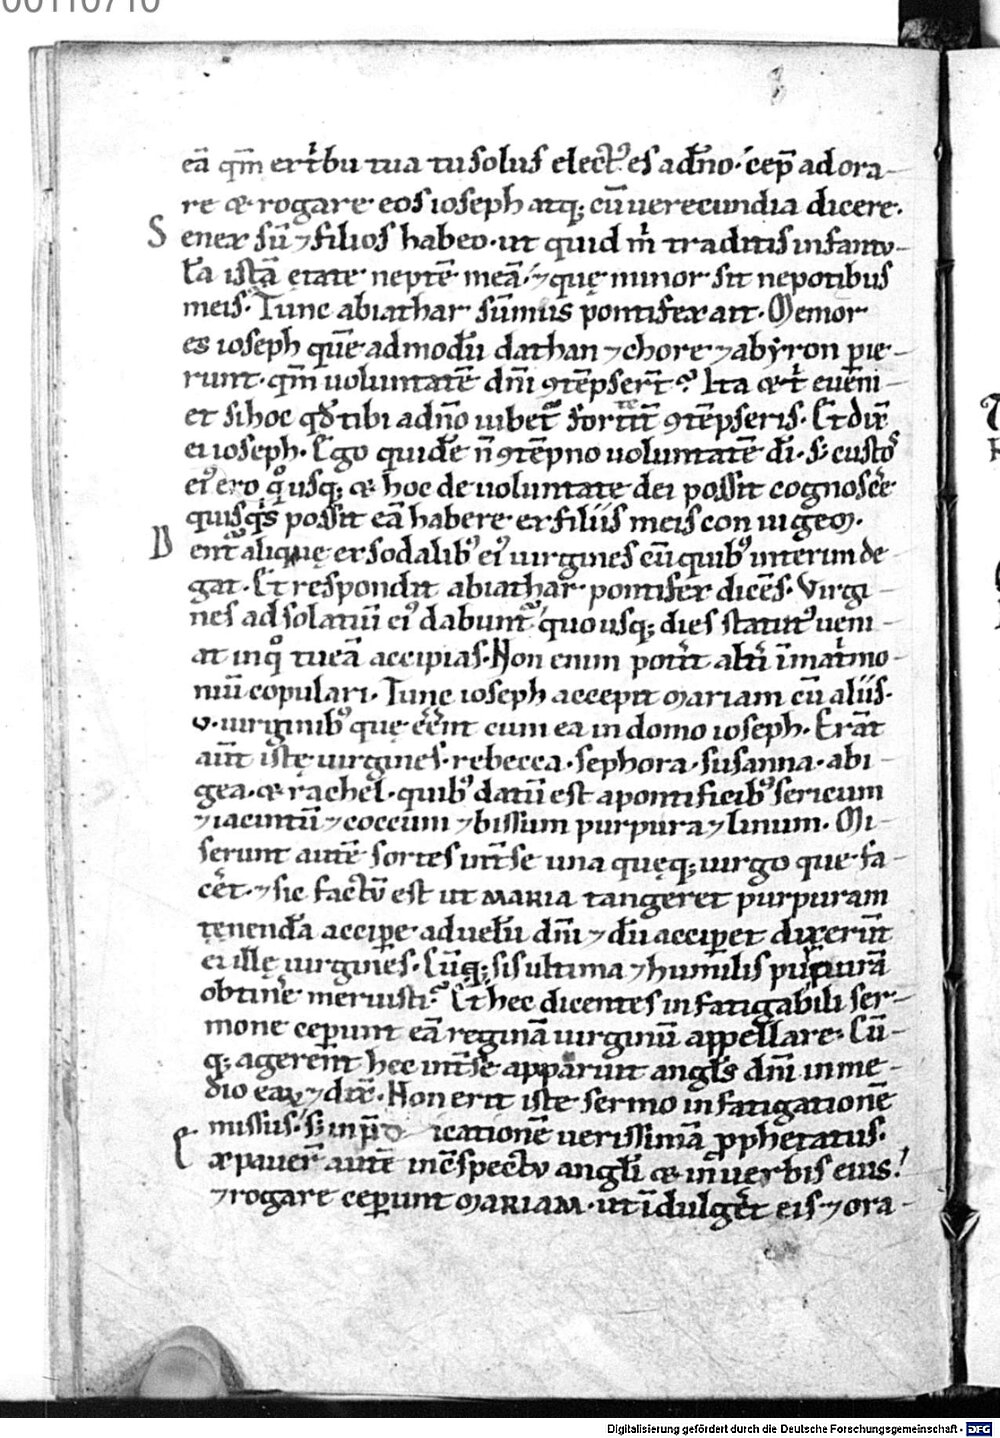 00110710
eā qm̄ ex t̄bu tua tu solus elect᷒ es a dn̄o· cep̄ adora-
re & rogare eos ioseph atq; cū uerecundia dicere.
Senex sū ⁊ filios habeo· ut quid m̄ traditis infantu-
lā istā ętate neptē meā· ⁊ quę minor sit nepotibus
meis. Tunc abiathar sūmus pontifex ait. Memor
es ioseph quē admodū dathan ⁊ chore ⁊ abyron pie-
runt· qm̄ uoluntatē dn̄i ꝯtēpser̄t? Ita & t̄ eueni-
et si hoc qd̄ tibi a dn̄o iubet᷒ ꝯtēpseris. Et dix̄
ei ioseph. Ego quidē n̄ ꝯtēpno uoluntatē dī· s; custos
ei᷒ ero q̊usq; & hoc de uoluntate dei possit cognoscere
quis possit eā habere ex filiis meis coniugem.
Dent᷒ aliquę ex sodalib᷒ ei᷒ uirgines cū quib᷒ interim de
gat. Et respondit abiathar pontifex dicēs. Virgi-
nes ad solatiū ei᷒ dabunt᷒ quo usq; dies statut᷒ ueni-
at in q̊ tu eā accipias. Non enim pot̄it alt̄i ī mat̄mo-
niū copulari. Tunc ioseph accepit mariam cū aliis·
v· uirginib᷒ quę eēnt cum ea in domo ioseph. Erāt
aūt istę uirgines· rebecca· sephora· susanna· abi-
gea· & rachel· quib᷒ datū est a pontificib᷒ sericum
⁊ iacintū ⁊ coccum ⁊ bissum purpura ⁊ linum. Mi-
serunt autē sortes int̄ se una quęq; uirgo que fa-
cēt· ⁊ sic factū est ut MARIA tangeret purpuram
tenendā accipe ad uelū dn̄i ⁊ dū acciperet dixerūt
ei illę uirgines. Cūq; sis ultima ⁊ humilis purpurā
obtinē meruisti? Et hec dicentes in fatigabili ser-
mone ceperunt eā reginā uirginū appellare. Cū-
q; agerent hec int̄ se apparuit angls dn̄i in me-
dio eaꝝ ⁊ dix̄. Non erit iste sermo in fatigationē
missus· s; in icationē uerissimā pphetatus.
Expauer̄ autē in cspectu angli & in uerbis eius!
⁊ rogare ceperunt MARIAM· ut īdulgēt eis ⁊ ora-
Digitalisierung gefördert durch die Deutsche Forschungsgemeinschaft - DFG